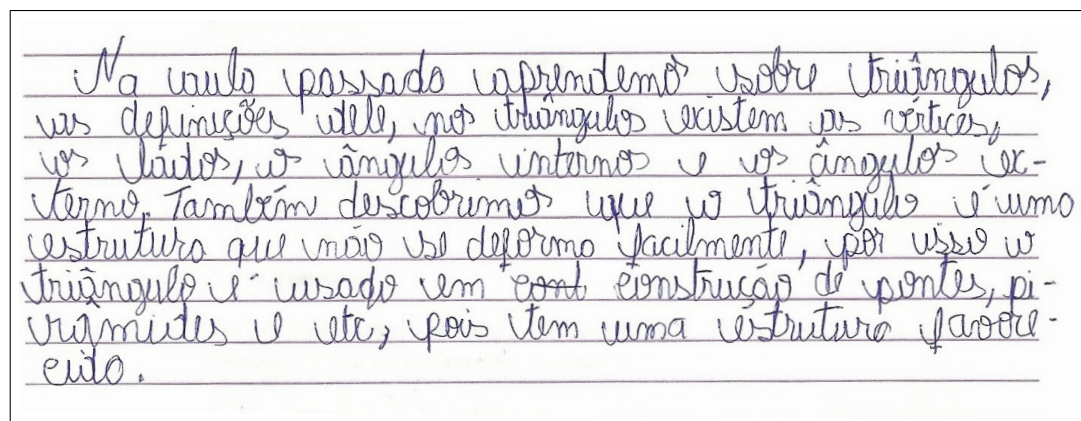 Na aula passada aprendemos sobre triângulos,
as definições dele, nos triângulos existem as vértices,
os ládos, o ângulos internos e os ângulos ex-
terno. Também descobrimos que o triângulo é uma
estrutura que não se deforma facilmente, por isso o
triângulo é usado em cont construção de pontes, pi-
râmides e etc, pois tem uma estrutura favore-
cida.